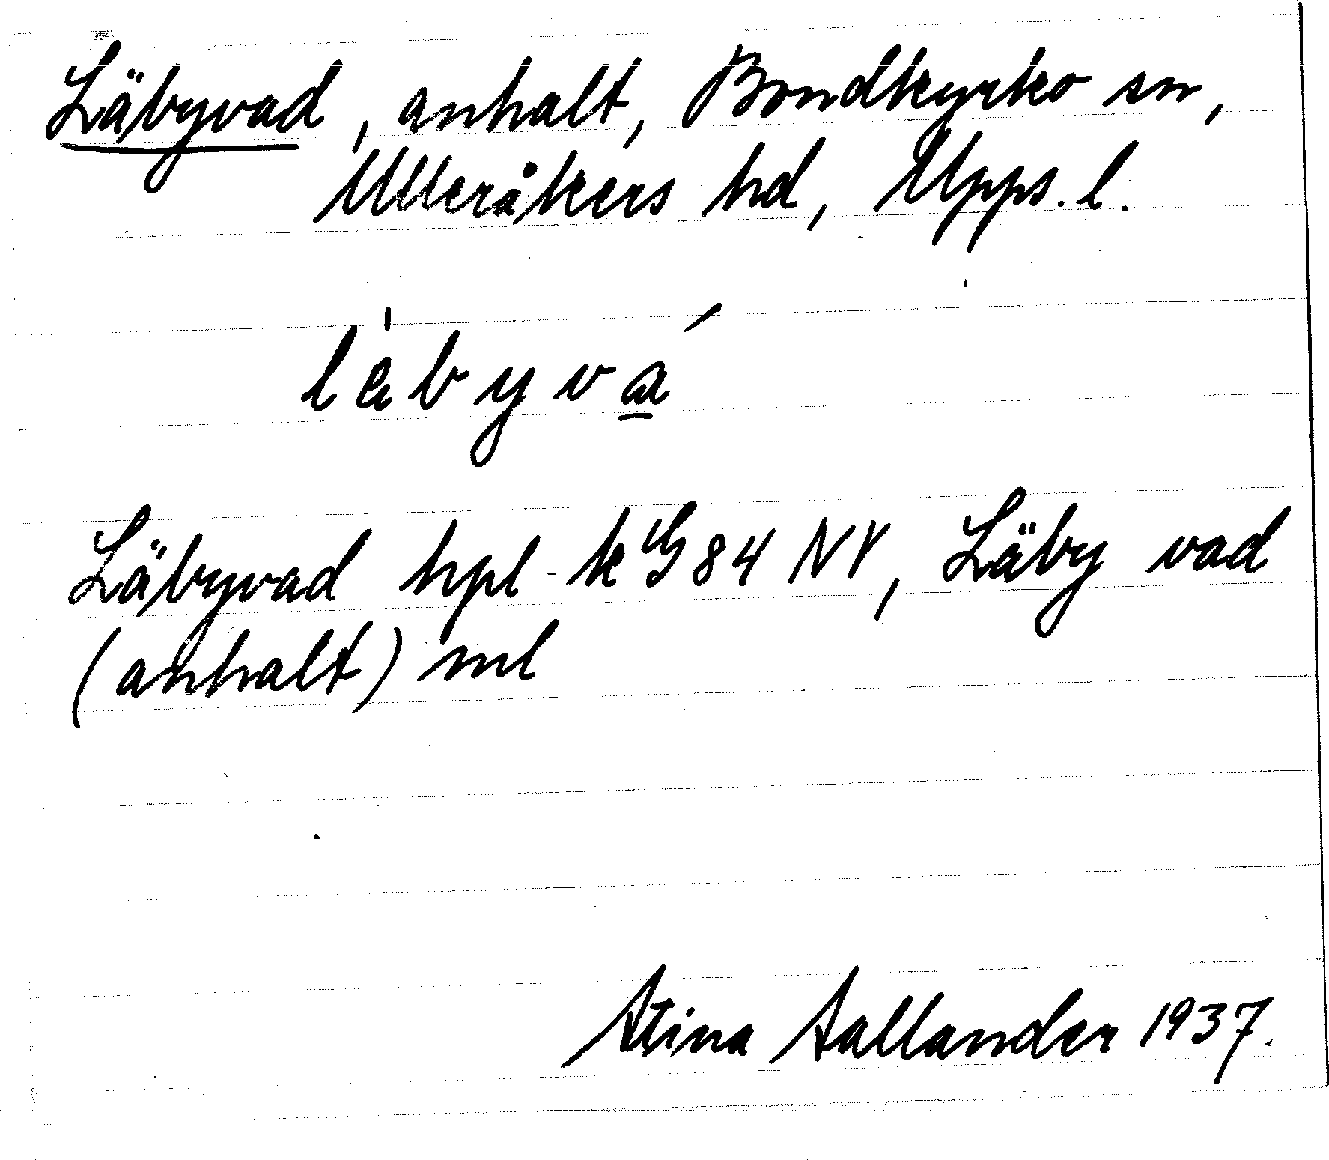 Läbyvad, anhalt, Bondkyrko sn,
Ulleråkers hd, Upps. l.
Läbyvad hpl - k G84 NV, Läby vad
(anhalt) ml
Stina Sallander 1937.